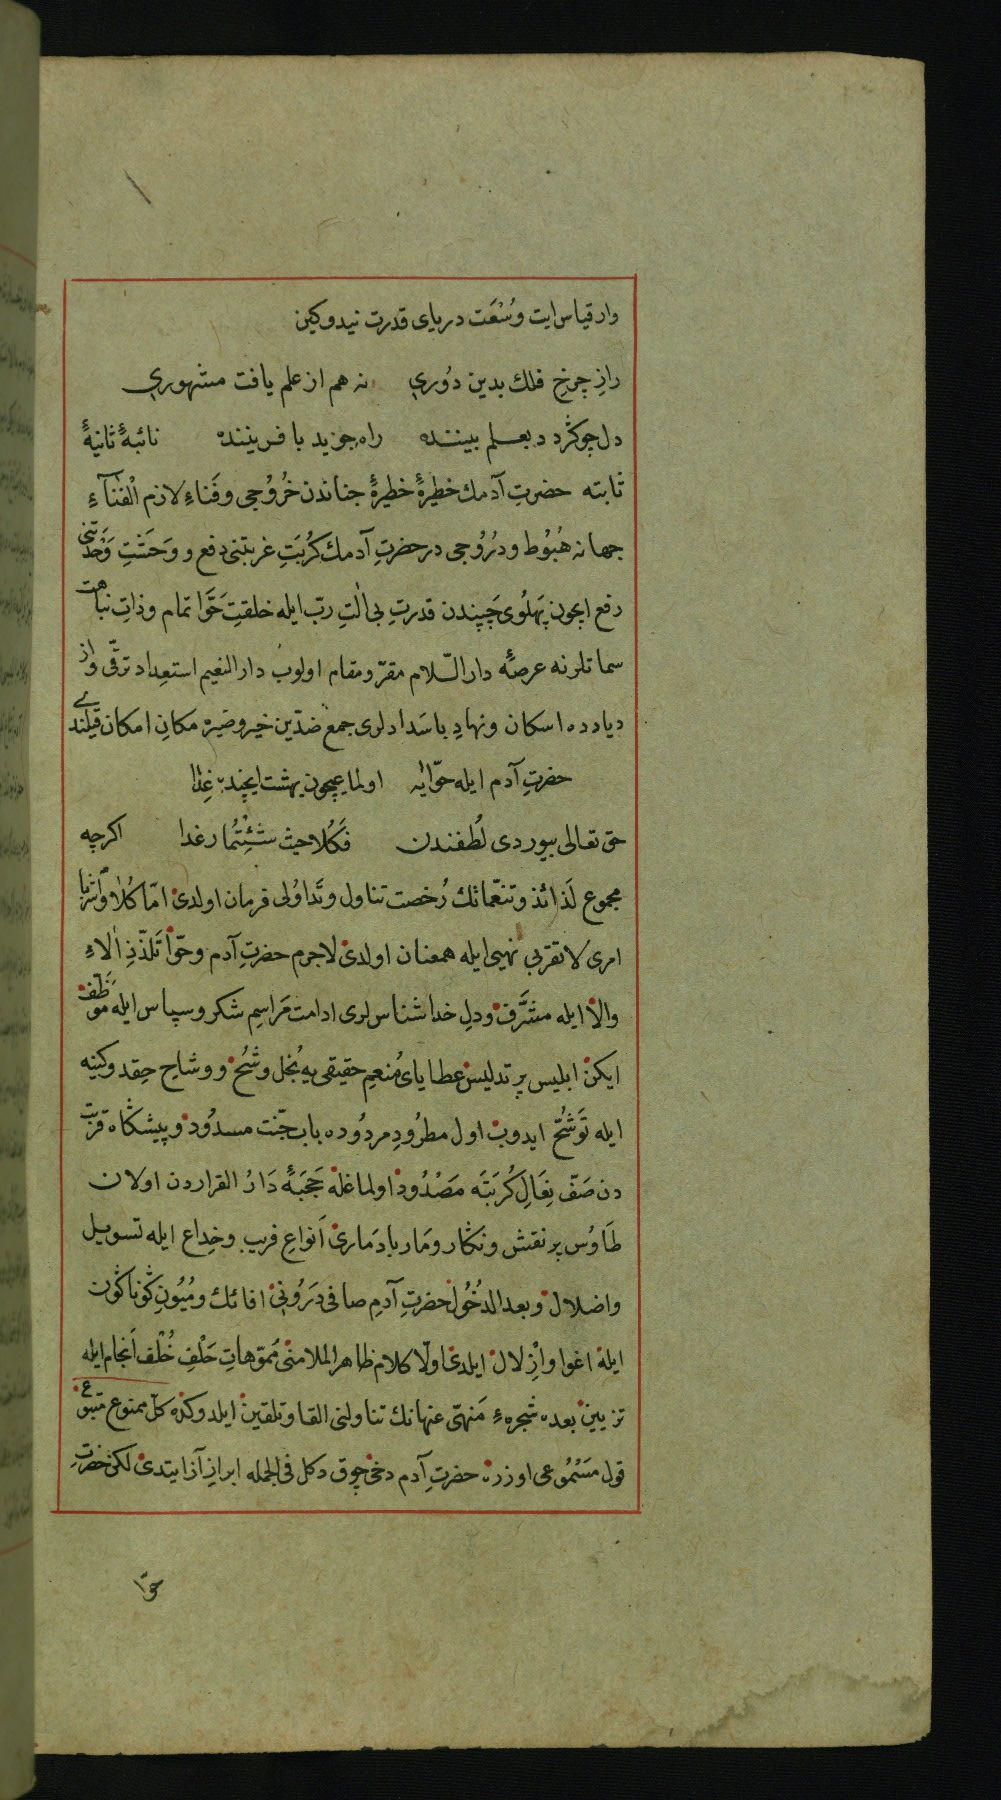 وار قیاس ایت وُسْعَت دریای قدرت نیدوکین
رازِ چرخِ فلك بدین دُوری نه هم از علم یافت مشهوری
دل چو کَرْدد بعلم بیننده راه جوید بافریننده نائبهٔ ثانیهٔ
ثابته حضرتِ آدمك خطیرهٔ خطیرهٔ جناندن خُرُوجی و فَناءِ لازم الْفَنآءِ
جهانه هُبُوط و دُرُوجی در حضرتِ آدمك کُرْبَتِ غربتنی دفع و وَحَشْتِ وَحْدتنی
رفع ایچون پَهلُوی چَپِندن قدرتِ بی الٰتِ ربّ ایله خلقتِ حَوّا تمام و ذاتِ نباهت
سماتلرنه عرصهٔ دار السّلام مقرّ و مقام اولوب دار النعیم استعداد ترقّی واز
دیادده اسکان و نهادِ باسَدادلری جمع ضدّین خیر و ضیره مکانِ امکان قیلندی
حضرتِ آدم ایله حوّایه اولمایچون بهشت ایچنده غِذا
حق تعالی بیوردی لُطفندن فَکُلا حیث شئِتُما رغدا اکرچه
مجموع لَذائذ و تنعّماتك رُخصت تناول و تَداوُلی فرمان اولدی امّا کُلا وٱشربا
امری لا تقربی نهیی ایله همعنان اولدی لاجرم حضرتِ آدم و حوّا تَلذّذِ اٰلاءِ
والا ایله مشرَّف و دلِ خداشناس لری ادامت مَراسِم شکر و سپاس ایله موَظّف
ایکن ابلیس پر تدلیس عطایای مُنعِم حقیقی یه بُخل و شُحّ و وشایح حِقد و کینه
ایله تَوَشُّح ایدوب اول مطرُودِ مردُوده باب جنّت مسدُود و پیشکاه قربت
دن صَفّ نِعَالِ کُرْبَتَه مَصْدُود اولماغله حَجَبَهٔ دَارُ القراردن اولان
طَاوُس پر نقش و نکار و مَار بادَماری اَنواعِ فریب و خِداع ایله تسویل
واضلال و بعد الدخُول حضرتِ آدمِ صافی دَرُونی افائك و مُیُونِ کُوناکُون
ایله اغوا و اِزْلال ایلدی اولّا کلام ظاهر الملامنی مُموّهاتِ حَلْفِ خُلْف اَنجام ایله
تزیین بعده شجرهءِ مَنهیّ عنهانك تناولنی القا و تلقین ایلدوکده کلّ ممنوع متبوع
قول مَسْمُوعی اوزره حضرتِ آدم دخی چوق دکل فی الجمله ابرازِ آز ایتدی لکن حضرتِ
حوّا